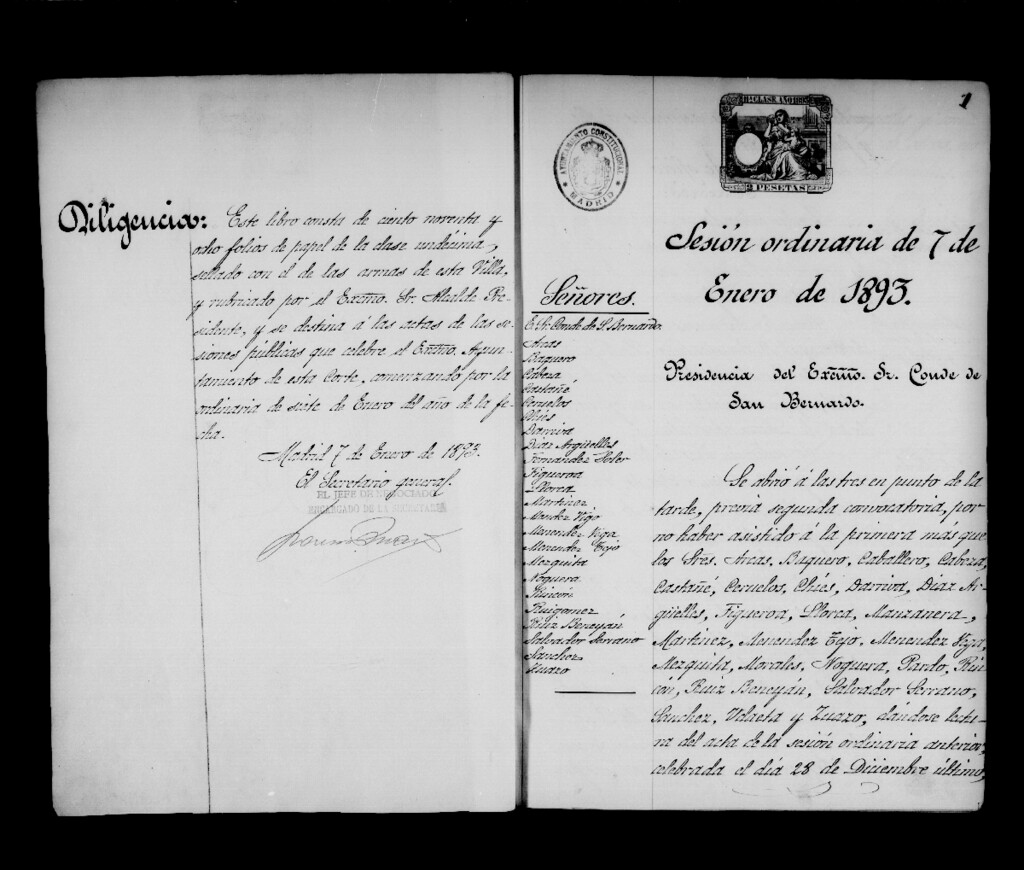 Diligencia: Este libro consta de ciento noventa y
ocho folios de papel de la clase undécima,
sellado con el de las armas de esta Villa,
y rubricado por el Excmo. Sr. Alcalde Pre-
sidente, y se destina á las actas de las se-
siones públicas que celebre el Excmo. Ayun-
tamiento de esta Corte, comenzando por la
ordinaria de siete de Enero del año de la fe-
cha.
Madrid 7 de Enero de 1893.
El Secretario general.
EL JEFE DE NEGOCIADO
ENCARGADO DE LA SECRETARÍA
1
AYUNTAMIENTO CONSTITUCIONAL
MADRID
11ª CLASE AÑO
2 PESETAS
Sesión ordinaria de 7 de
Enero de 1893.
Señores.
E. Sr. Conde de S. Bernardo.
Arcas
Baquero
Cabeza
Castañé
Ceruelos
Chies
Darriva
Diaz Argüelles
Fernandez Soler
Figueroa
Llorca
Martinez
Mendez Vigo
Menendez Vega
Menendez Tejo
Mezquita
Noguera
Rincón
Ruigomez
Ruiz Beneyán
Salvador Serrano
Sanchez
Zuazo
Presidencia del Excmo. Sr. Conde de
San Bernardo.
Se abrió á las tres en punto de la
tarde, previa segunda convocatoria, por
no haber asistido á la primera más que
los Sres. Arcas, Baquero, Caballero, Cabeza,
Castañé, Ceruelos, Chies, Darriva, Diaz Ar-
güelles, Figueroa, Llorca, Manzanera,
Martinez, Menendez Tejo, Menendez Vega,
Mezquita, Morales, Noguera, Pardo, Rin-
cón, Ruiz Beneyán, Salvador Serrano,
Sanchez, Udaeta y Zuazo, dándose lectu-
ra del acta de la sesión ordinaria anterior,
celebrada el día 28 de Diciembre último,